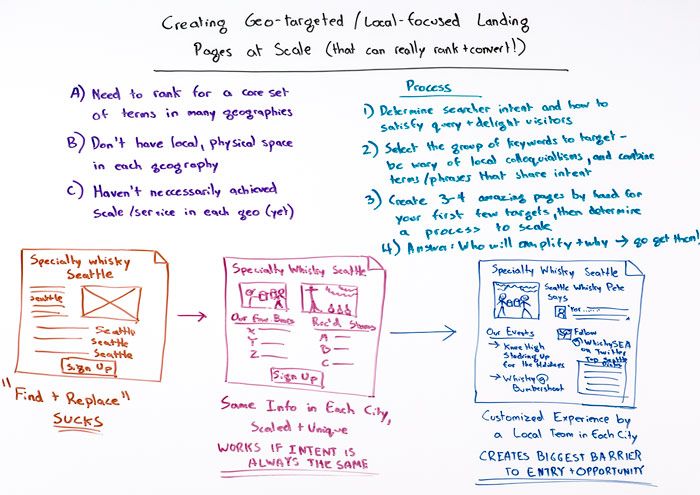 Creating Geo-targeted / Local-focused Landing
Pages at Scale (that can really rank + convert!)
A) Need to rank for a core set
of terms in many geographies
B) Don't have local, physical space
in each geography
C) Haven't neccessarily achieved
Scale/service in each geo (yet)
Process
1) Determine searcher intent and how to
satisfy query + delight visitors
2) Select the group of keywords to target -
be wary of local colloquialisms, and combine
terms/phrases that share intent
3) Create 3-4 amazing pages by hand for
your first few targets, then determine
a process to scale
4) Answer: Who will amplify + why → go get them!
Specialty whisky
Seattle
seattle
Seattle
Seattle
Seattle
Sign Up
"Find + Replace"
SUCKS
Specialty Whisky Seattle
Our Fave Bars
X
Y
Z
Rec'd Stores
A
B
C
Sign Up
Same Info in Each City,
Scaled + Unique
WORKS IF INTENT IS
ALWAYS THE SAME
Specialty Whisky Seattle
Seattle Whisky Pete
Says
Our Events
→ Knee High
Stocking Up
for the Holidays
→ Whisky @
Bumbershoot
Follow
@WhiskySEA
on Twitter
Top Seattle
Customized Experience by
a Local Team in Each City
CREATES BIGGEST BARRIER
TO ENTRY + OPPORTUNITY